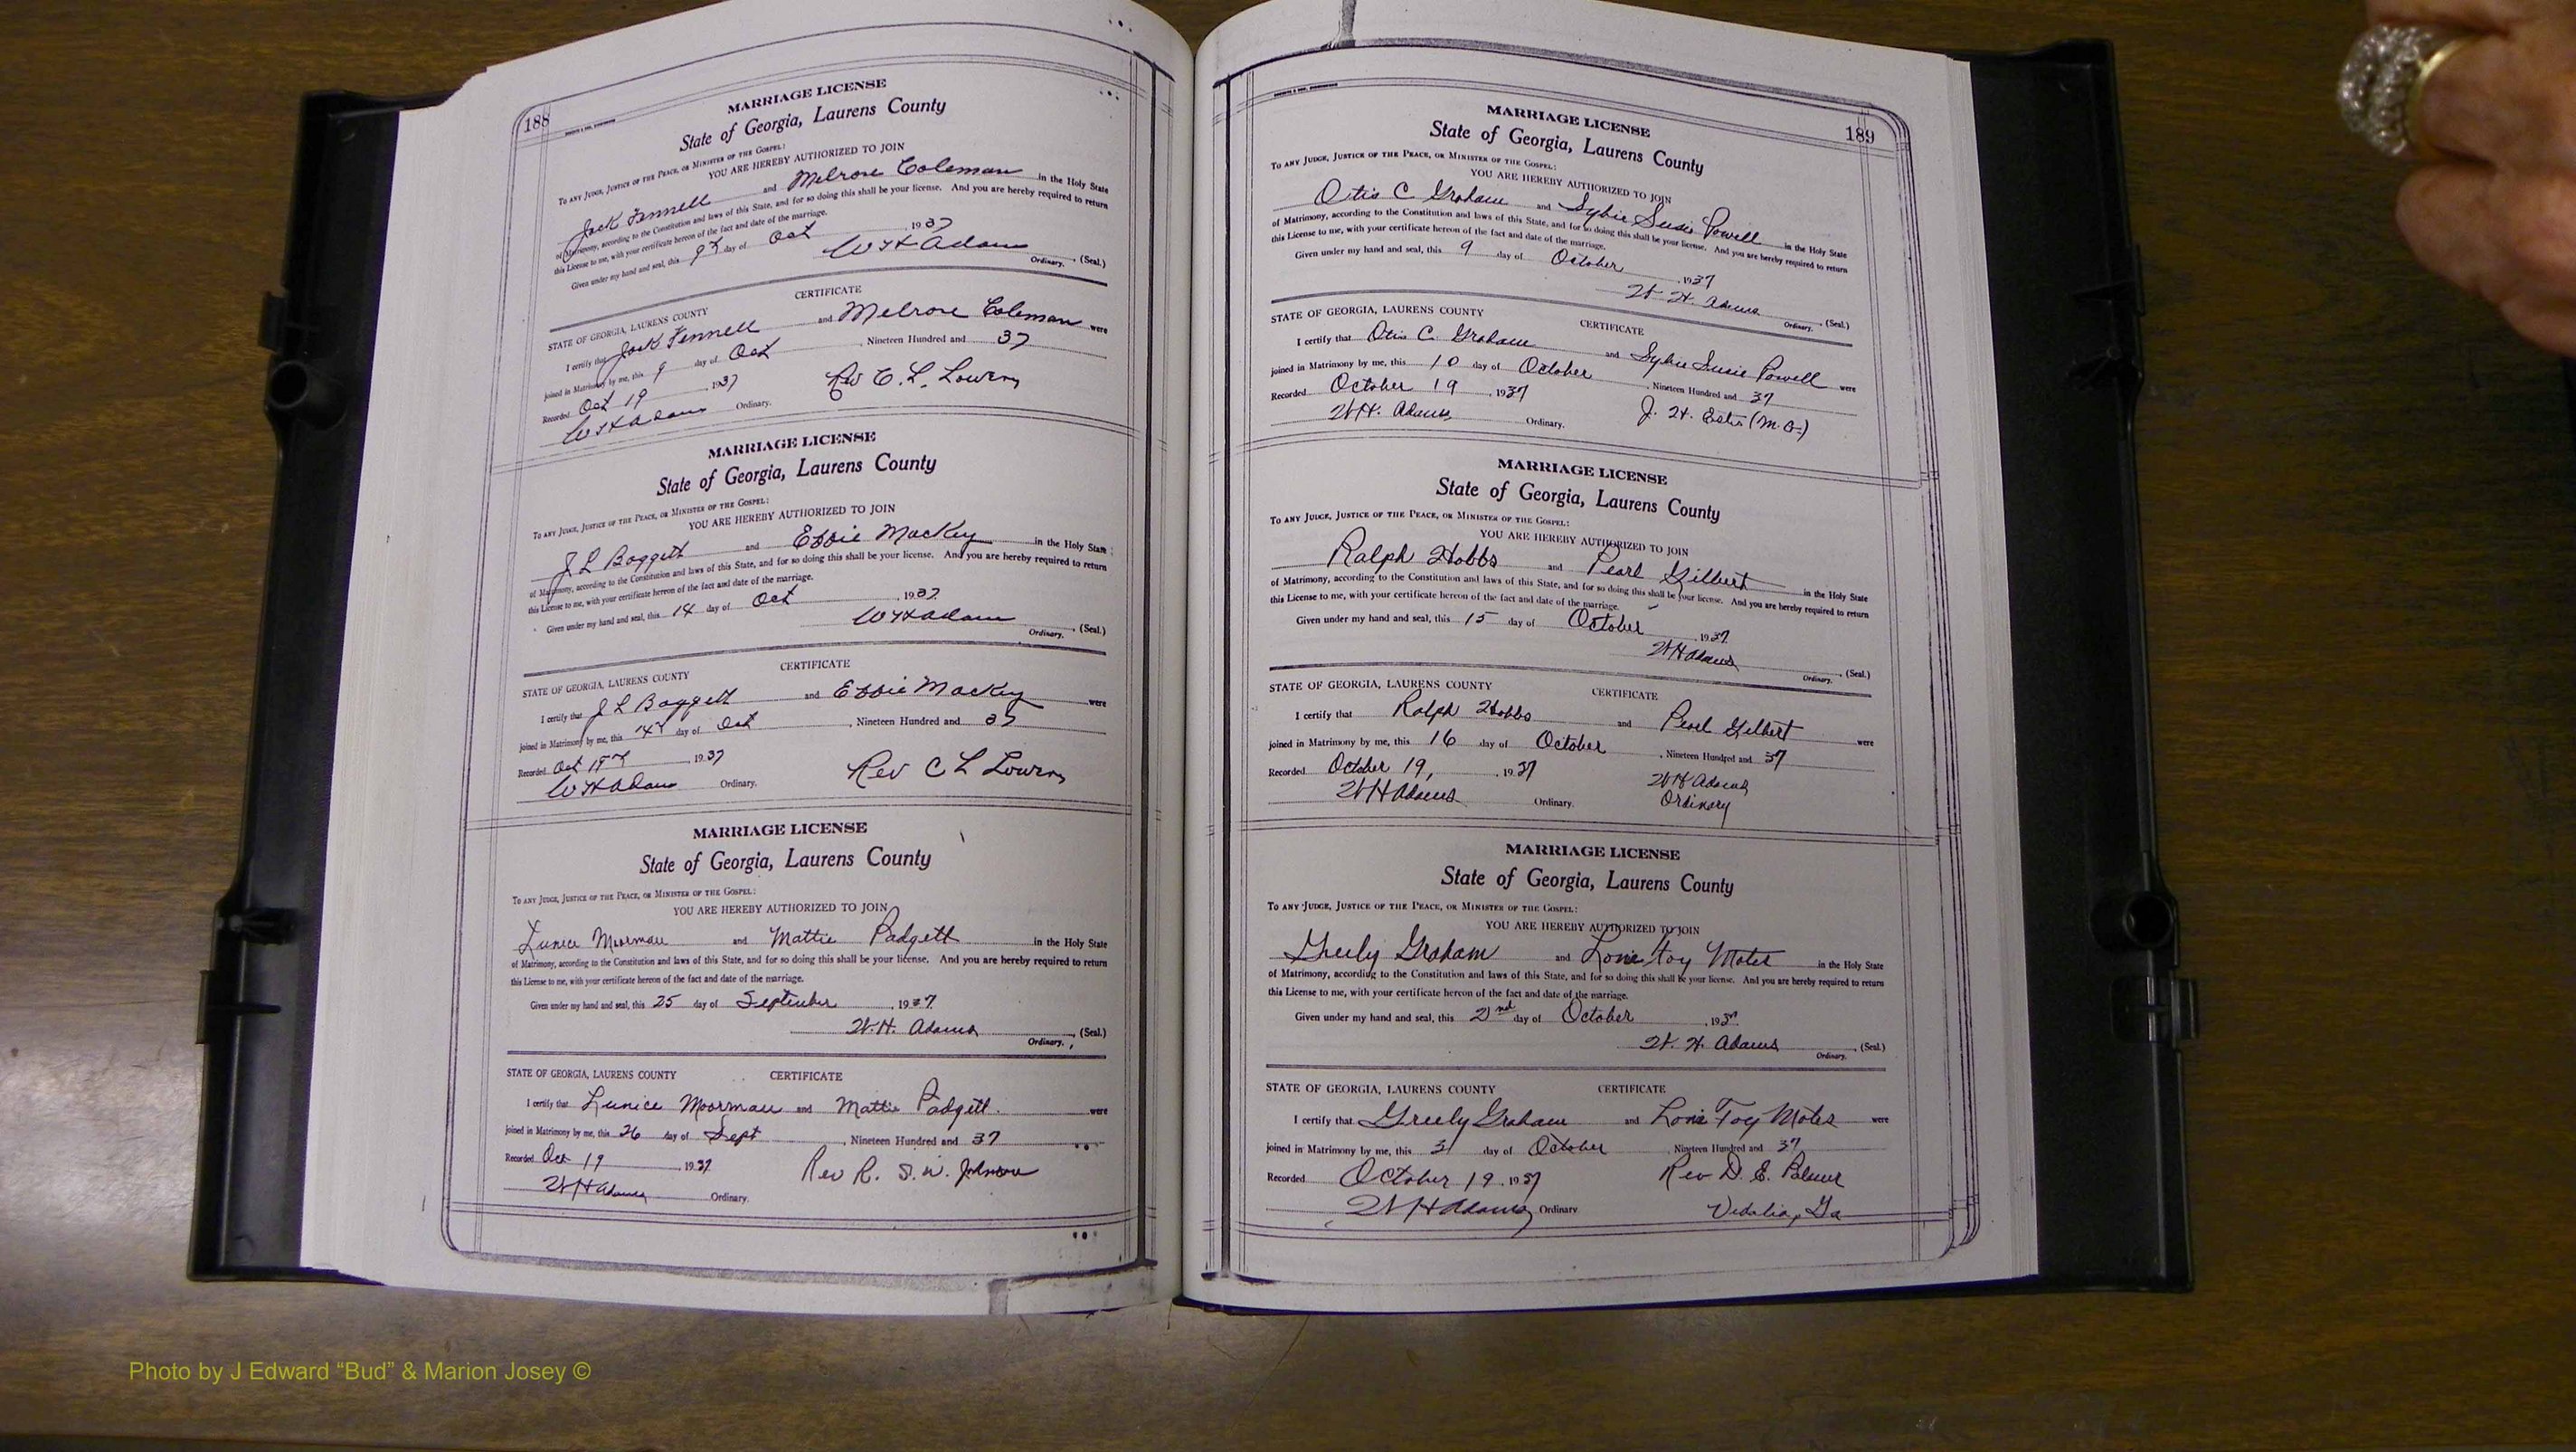 188
MARRIAGE LICENSE
State of Georgia, Laurens County
To any Judge, Justice of the Peace, or Minister of the Gospel:
YOU ARE HEREBY AUTHORIZED TO JOIN
Jack Fennell and Melrose Coleman in the Holy State
of Matrimony, according to the Constitution and laws of this State, and for so doing this shall be your license. And you are hereby required to return
this License to me, with your certificate hereon of the fact and date of the marriage.
Given under my hand and seal, this 9th day of Oct 1937
W H Adams (Seal.)
Ordinary.
STATE OF GEORGIA, LAURENS COUNTY CERTIFICATE
I certify that Jack Fennell and Melrose Coleman were
joined in Matrimony by me, this 9 day of Oct, Nineteen Hundred and 37
Recorded Oct 19 1937 Rev C. L. Lowery
W H Adams Ordinary.
MARRIAGE LICENSE
State of Georgia, Laurens County
To any Judge, Justice of the Peace, or Minister of the Gospel:
YOU ARE HEREBY AUTHORIZED TO JOIN
J L Baggett and Effie Mackey in the Holy State
of Matrimony, according to the Constitution and laws of this State, and for so doing this shall be your license. And you are hereby required to return
this License to me, with your certificate hereon of the fact and date of the marriage.
Given under my hand and seal, this 14 day of Oct, 1937
W H Adams (Seal.)
Ordinary.
STATE OF GEORGIA, LAURENS COUNTY CERTIFICATE
I certify that J L Baggett and Effie Mackey were
joined in Matrimony by me, this 14th day of Oct, Nineteen Hundred and 37
Recorded Oct 19th 1937 Rev C L Lowery
W H Adams Ordinary.
MARRIAGE LICENSE
State of Georgia, Laurens County
To any Judge, Justice of the Peace, or Minister of the Gospel:
YOU ARE HEREBY AUTHORIZED TO JOIN
Moorman and Mattie Padgett in the Holy State
of Matrimony, according to the Constitution and laws of this State, and for so doing this shall be your license. And you are hereby required to return
this License to me, with your certificate hereon of the fact and date of the marriage.
Given under my hand and seal, this 25 day of September, 1937
W. H. Adams (Seal.)
Ordinary.
STATE OF GEORGIA, LAURENS COUNTY CERTIFICATE
I certify that Moorman and Mattie Padgett. were
joined in Matrimony by me, this 26 day of Sept, Nineteen Hundred and 37
Recorded Oct 19, 1937 Rev R. S. W. Johnson
W H Adams Ordinary.
189
MARRIAGE LICENSE
State of Georgia, Laurens County
To any Judge, Justice of the Peace, or Minister of the Gospel:
YOU ARE HEREBY AUTHORIZED TO JOIN
Otis C Graham and Sybie Susie Powell in the Holy State
of Matrimony, according to the Constitution and laws of this State, and for so doing this shall be your license. And you are hereby required to return
this License to me, with your certificate hereon of the fact and date of the marriage.
Given under my hand and seal, this 9 day of October, 1937
W. H. Adams (Seal.)
Ordinary.
STATE OF GEORGIA, LAURENS COUNTY CERTIFICATE
I certify that Otis C. Graham and Sybie Susie Powell were
joined in Matrimony by me, this 10 day of October, Nineteen Hundred and 37
Recorded October 19, 1937 J. H. (M. G.)
W H. Adams Ordinary.
MARRIAGE LICENSE
State of Georgia, Laurens County
To any Judge, Justice of the Peace, or Minister of the Gospel:
YOU ARE HEREBY AUTHORIZED TO JOIN
Ralph Hobbs and Pearl Gilbert in the Holy State
of Matrimony, according to the Constitution and laws of this State, and for so doing this shall be your license. And you are hereby required to return
this License to me, with your certificate hereon of the fact and date of the marriage.
Given under my hand and seal, this 15 day of October, 1937
W H Adams (Seal.)
Ordinary.
STATE OF GEORGIA, LAURENS COUNTY CERTIFICATE
I certify that Ralph Hobbs and Pearl Gilbert were
joined in Matrimony by me, this 16 day of October, Nineteen Hundred and 37
Recorded October 19, 1937 W H Adams
W H Adams Ordinary. Ordinary
MARRIAGE LICENSE
State of Georgia, Laurens County
To any Judge, Justice of the Peace, or Minister of the Gospel:
YOU ARE HEREBY AUTHORIZED TO JOIN
Greely Graham and Lonie Foy Motes in the Holy State
of Matrimony, according to the Constitution and laws of this State, and for so doing this shall be your license. And you are hereby required to return
this License to me, with your certificate hereon of the fact and date of the marriage.
Given under my hand and seal, this 2nd day of October, 1937
W. H. Adams (Seal.)
Ordinary.
STATE OF GEORGIA, LAURENS COUNTY CERTIFICATE
I certify that Greely Graham and Lonie Foy Motes were
joined in Matrimony by me, this 3 day of October, Nineteen Hundred and 37
Recorded October 19, 1937 Rev D. E. Palmer
W H Adams Ordinary Vidalia, Ga
Photo by J Edward “Bud” & Marion Josey ©